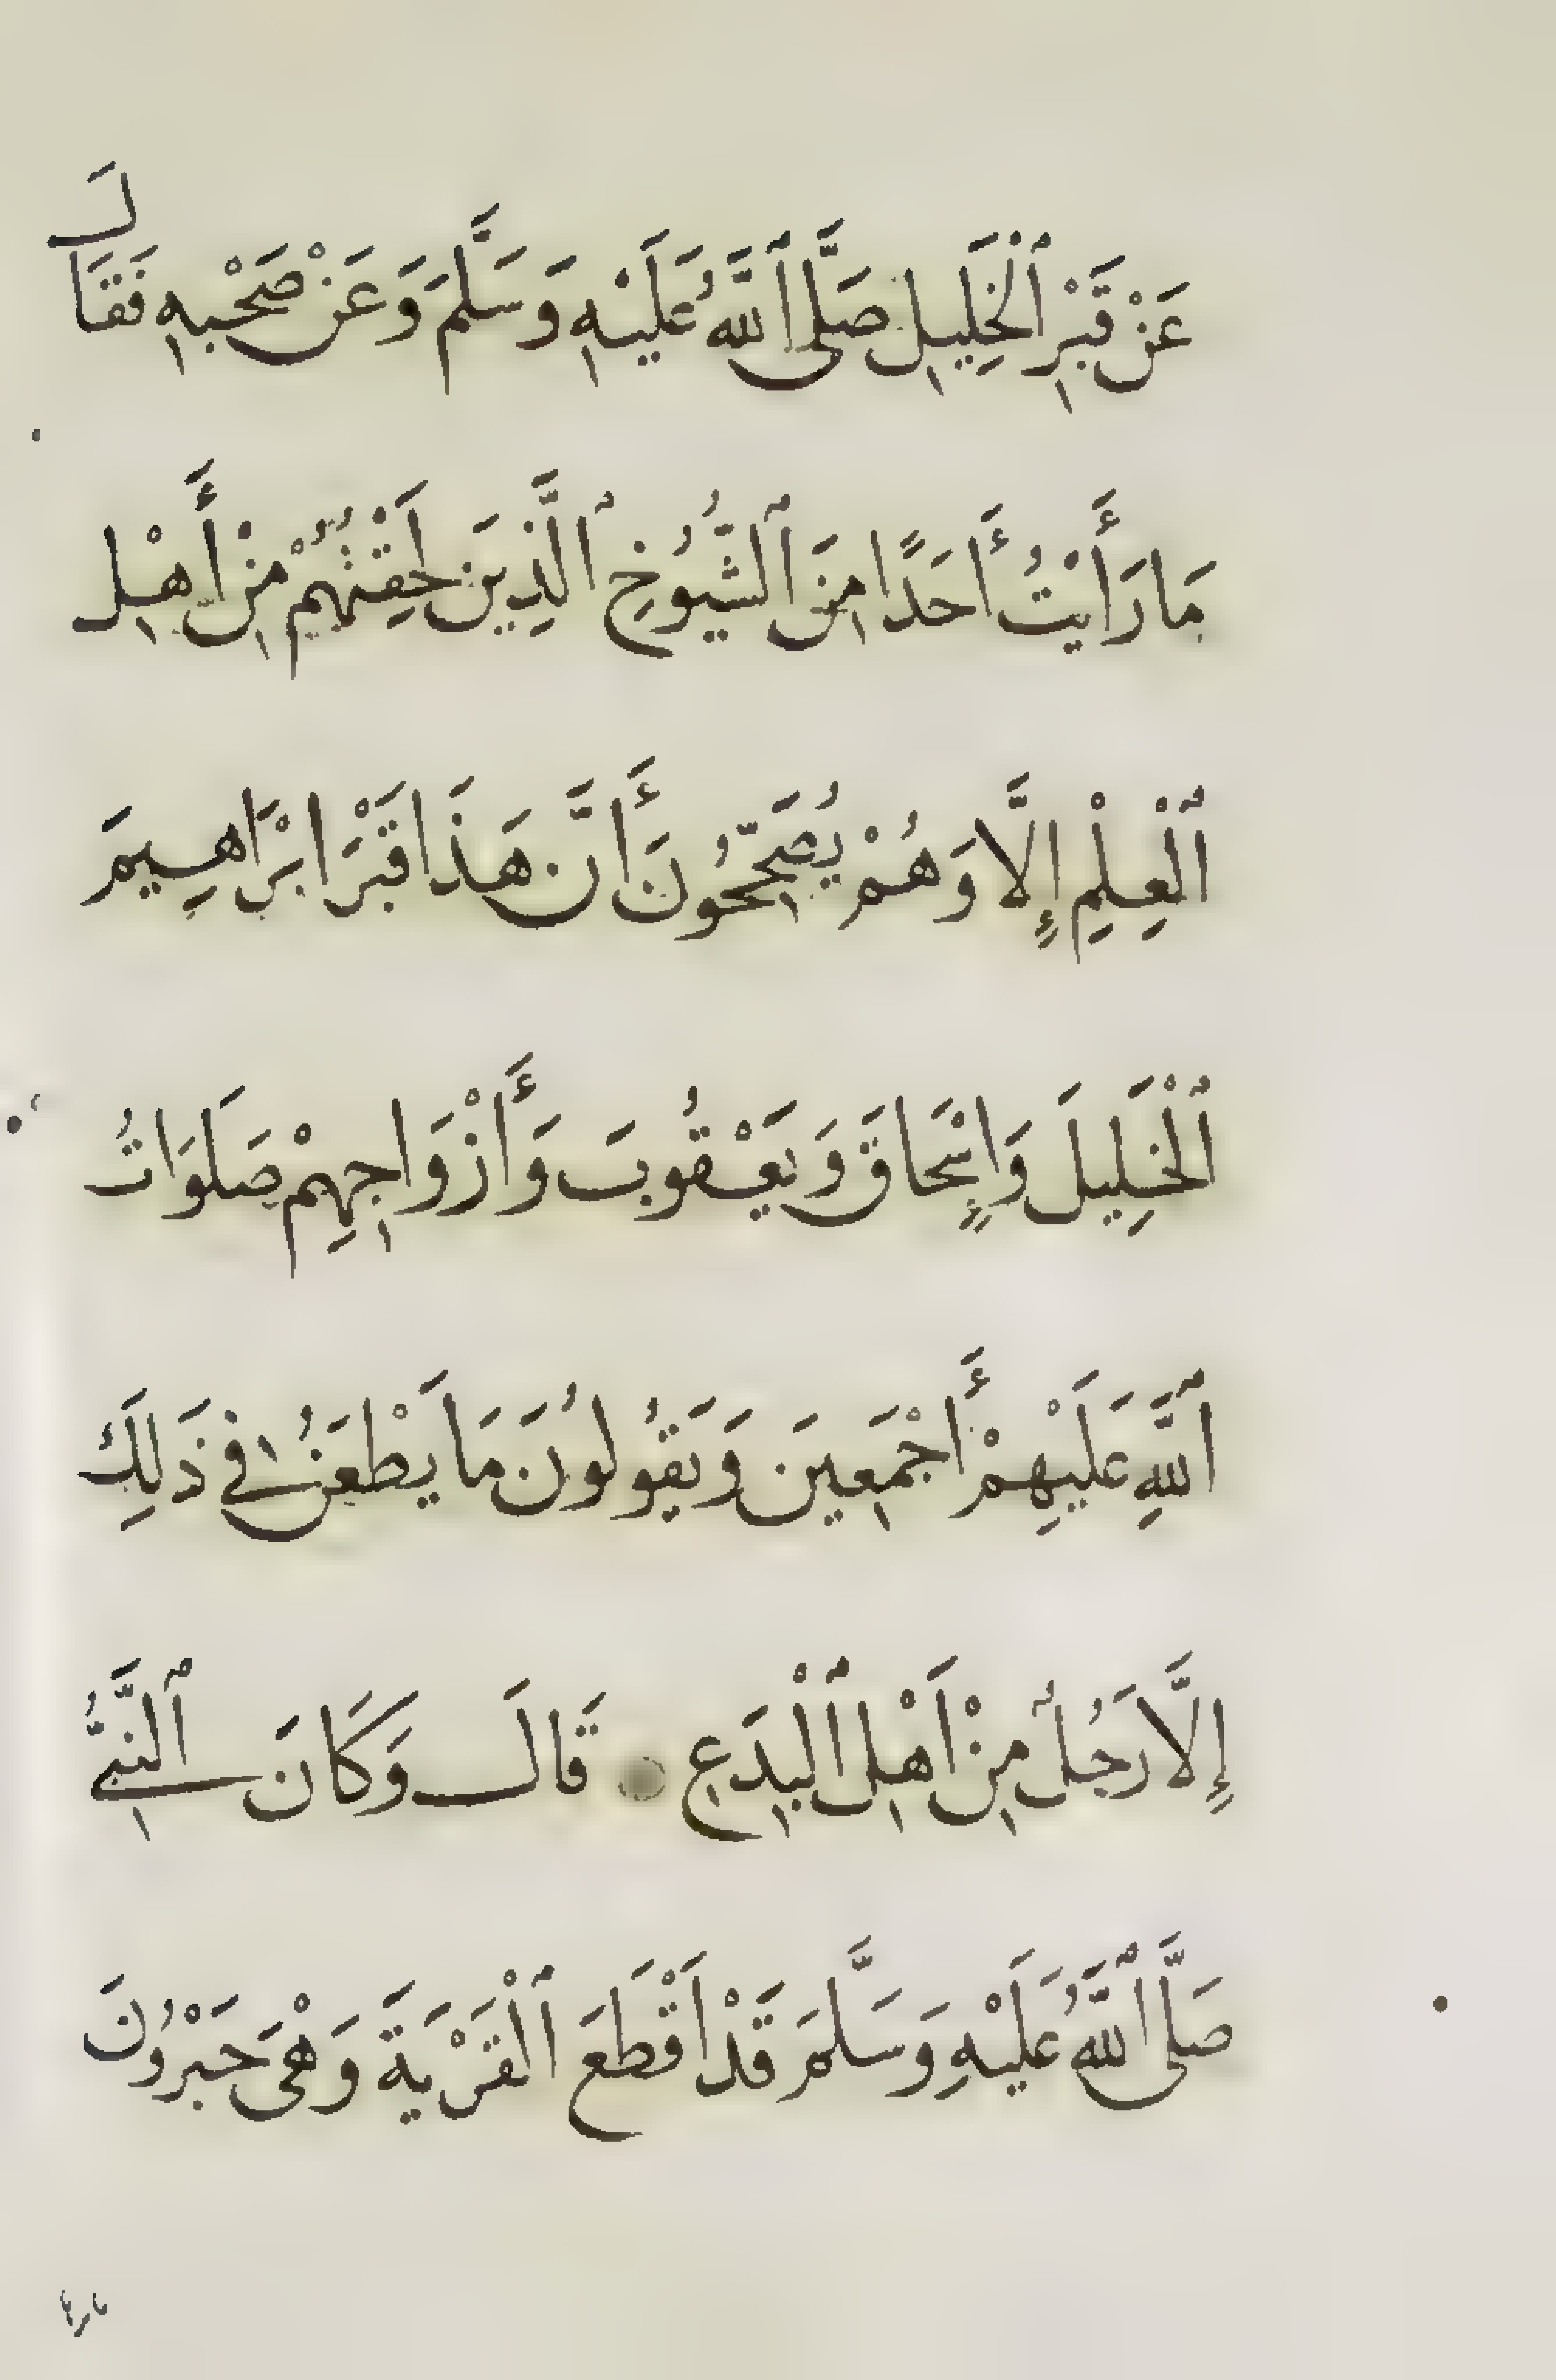 عَنْ قَبْرِ ٱلْخَلِيلِ صَلَّى ٱللَّهُ عَلَيْهِ وَسَلَّمَ وَعَنْ صَحْبِهِ فَقَالَ
مَا رَأَيْتُ أَحَدًا مِنَ ٱلشُّيُوخِ ٱلَّذِينَ لَحِقْتُهُمْ مِنْ أَهْلِ
ٱلْعِلْمِ إِلَّا وَهُمْ يُصَحِّحُونَ أَنَّ هَذَا قَبْرَ ابْرَاهِيمَ
ٱلْخَلِيلَ وَإِسْحَاقَ وَيَعْقُوبَ وَأَزْوَاجِهِمْ صَلَوَاتُ
ٱللَّهِ عَلَيْهِمْ أَجْمَعِينَ وَيَقُولُونَ مَا يَطْعَنُ فِي ذَلِكَ
إِلَّا رَجُلٌ مِنْ اَهْلِ ٱلْبِدَعِ قَالَ وَكَانَ ٱلنَّبِيُّ
صَلَّى ٱللَّهُ عَلَيْهِ وَسَلَّمَ قَدْ اَقْطَعَ ٱلْقَرْيَةَ وَهْيَ حَبْرُونَ